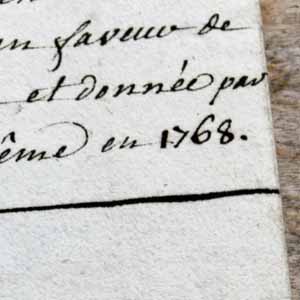 en faveur de
et donnée par
ême en 1768.